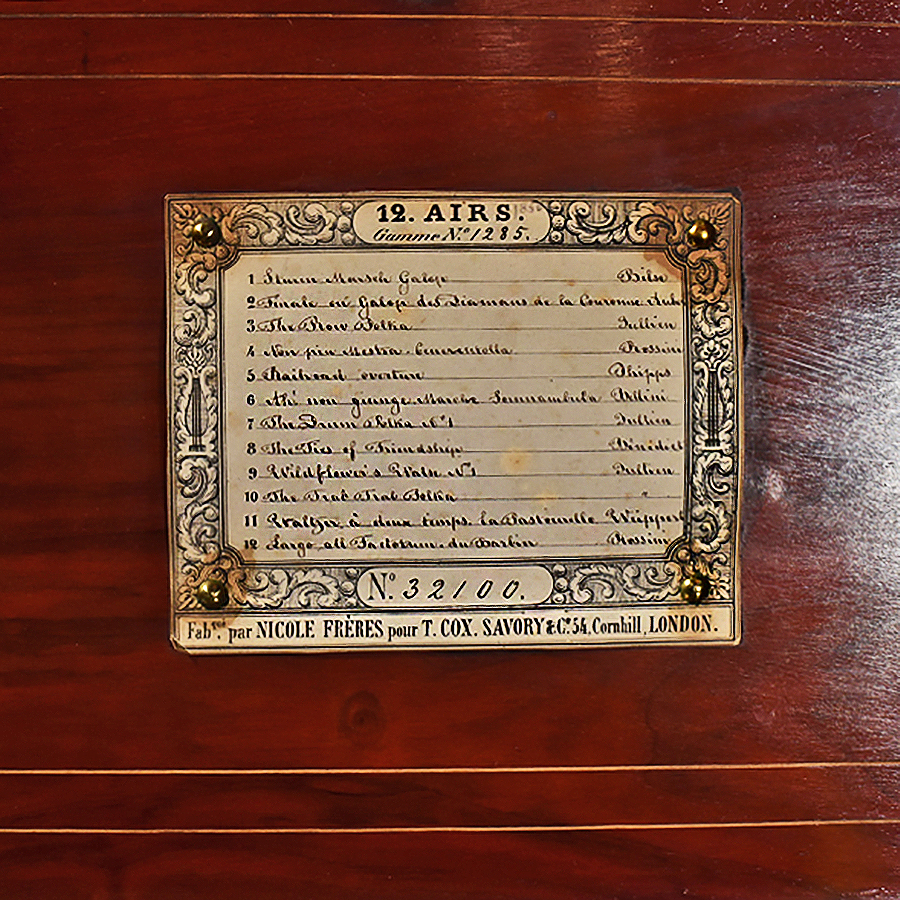 12. AIRS.
Gamme N.º 1285.
1 Sturm Marsch Galop Bilse
2 Finale en Galop des Diamans de la Couronne Aube
3 The Prow Polka Jullien
4 Non piu Mestra. Cenerentolla Rossini
5 Railroad overture Phipps
6 Ah! non giunge Marche Sonnambula Bellini
7 The Drum Polka Nº1 Jullien
8 The Ties of Friendship Bénédict
9 Wildflower's Waltz Nº1 Jullien
10 The Trab Trab Polka "
11 Waltzer à deux temps. la Pastourelle Wuppert
12 Largo all Factotum. du Barbier Rossini
Nº. 32100.
Fabqué. par NICOLE FRÈRES pour T. COX. SAVORY & Cº. 54, Cornhill, LONDON.